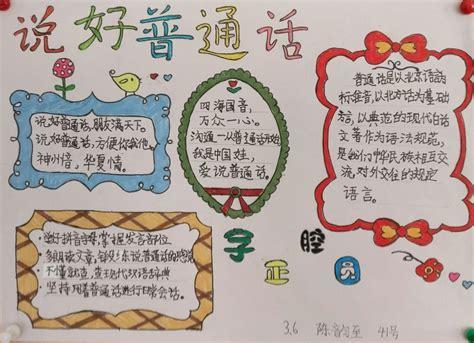 说好普通话
说好普通话，朋友满天下。
说好普通话，方便你我他。
神州音，华夏情。
四海国音，
万众一心。
沟通一从普通话开始
我是中国娃，
爱说普通话。
普通话是以北京语音
标准音，以北方话为基础
方言，以典范的现代白话
文著作为语法规范，
是我们
流，对外交往的规定
语言。
学好拼音字母掌握发音部位
多朗读文章
不懂就查，查现代汉语辞典
坚持用普通话进行日常会话。
字正腔圆
3.6 陈 至 41号